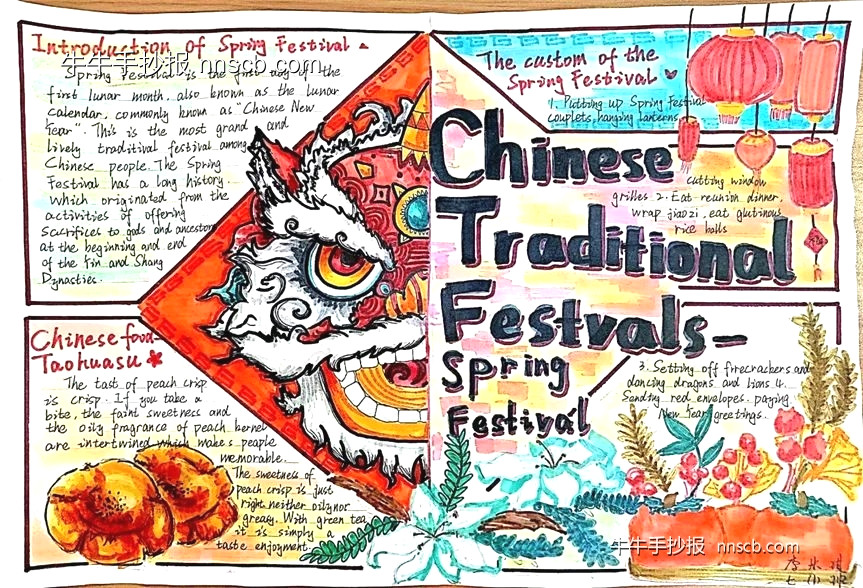 Introduction of Spring Festival
牛牛手抄报 nnscb.com
Spring Festival is the first day of the
first lunar month, also known as the lunar
calendar, commonly known as "Chinese New
Year". This is the most grand and
lively traditival festival among
Chinese people. The Spring
Festival has a long history
which originated from the
activities of offering
Sacrifices to gods and ancestors
at the beginning and end
of the Yin and Shang
Dynasties.
Chinese food-
Taohuasu
The tast of peach crisp
is crisp. If you take a
bite, the faint sweetness and
the oily fragrance of peach kernel
are intertwined which makes people
memorable.
The sweetness of
peach crisp is just
right, neither oily nor
greasy. With green tea,
it is simply a
taste enjoyment.
The custom of the
Spring Festival
1. Putting up Spring Festival
couplets, hanging lanterns
cutting window
grilles 2. Eat reunion dinner,
wrap jiaozi, eat glutinous
rice balls
Chinese
Traditional
Festvals-
Spring
Festival
3. Setting off firecrackers and
dancing dragons and lions 4.
Sending red envelopes. paying
New Year greetings.
牛牛手抄报 nnscb.com